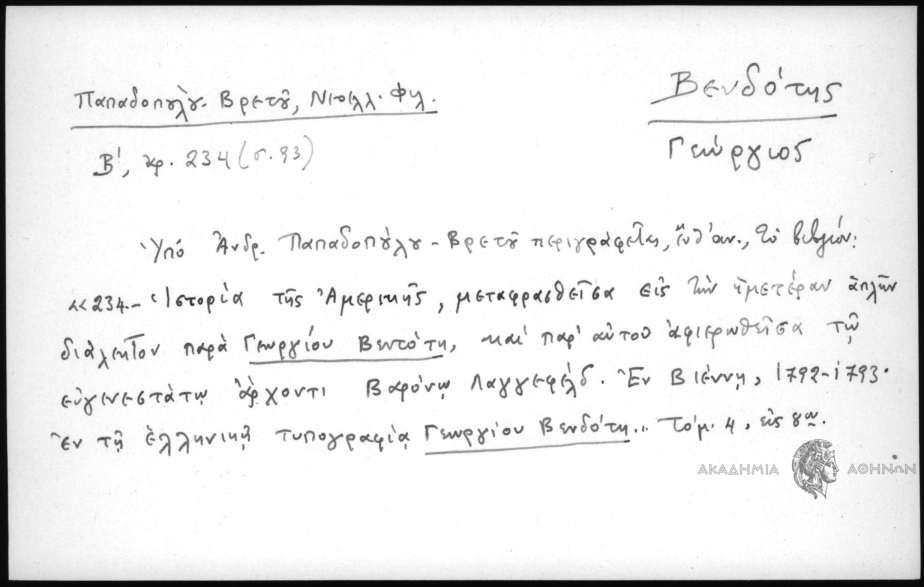 Παπαδοπούλου Βρετοῦ, Νεοελλ. Φιλ.
Β', ἀρ. 234 (σ. 93)
Βενδότης
Γεώργιος
Ὑπό Ἀνδρ. Παπαδοπούλου-Βρετοῦ περιγράφεται, ἔνθ' ἀν., τό βιβλίον:
«234.- Ἱστορία τῆς Ἀμερικῆς, μεταφρασθεῖσα εἰς τήν ἡμετέραν ἁπλῆν
διάλεκτον παρά Γεωργίου Βεντότη, καί παρ' αὐτοῦ ἀφιερωθεῖσα τῷ
εὐγενεστάτῳ ἄρχοντι Βαρόνῳ Λαγγεφέλδ. Ἐν Βιέννῃ, 1792-1793.
Ἐν τῇ ἑλληνικῇ τυπογραφίᾳ Γεωργίου Βενδότη... Τόμ. 4, εἰς 8ον.
ΑΚΑΔΗΜΙΑ ΑΘΗΝΩΝ